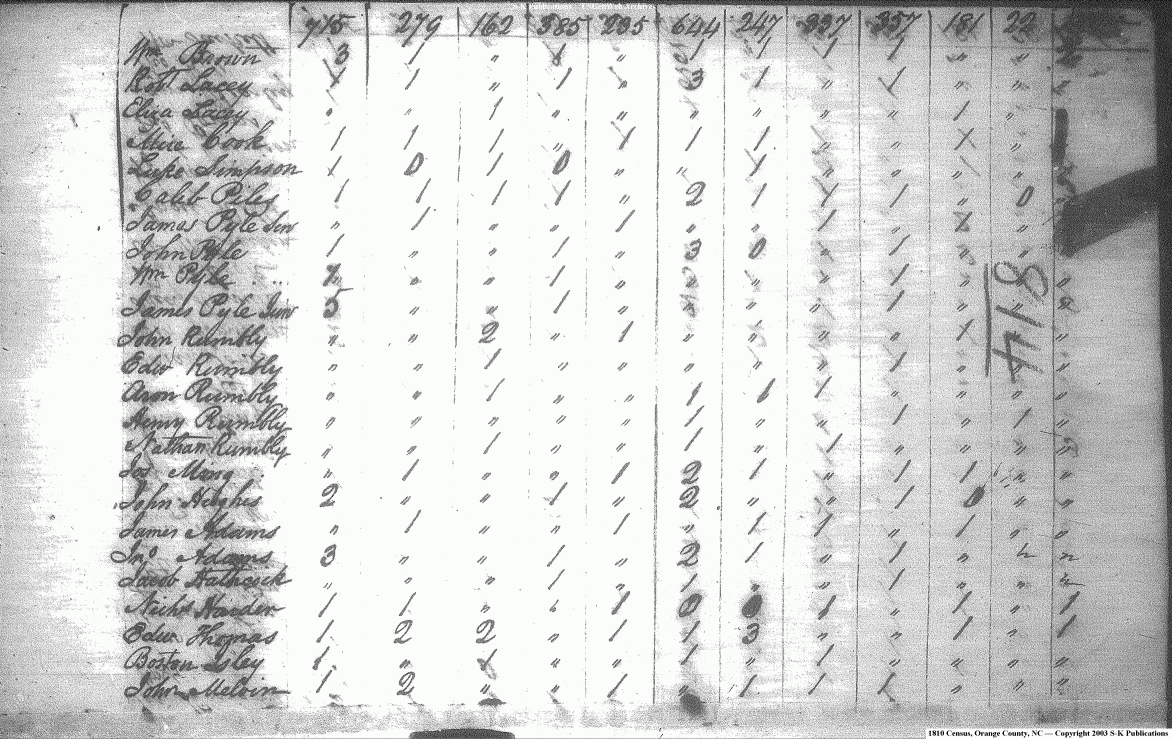 715 279 162 385 235 644 247 337 357 181 22
Wm Brown 3 1 " 1 " 1 1 1 1 " "
Robt Lacey 1 1 " 1 " 3 1 " 1 " " "
Eliza Lacey " " 1 " " " " " " 1 " "
Alice Cook 1 1 1 " 1 1 1 " " 1 "
Luke Simpson 1 0 1 0 " " 1 " " "
Caleb Piles 1 1 1 1 " 2 1 1 1 " 0
James Pyle Sen " 1 " " 1 " " 1 " 1 "
John Pyle 1 " " 1 " 3 0 " 1 " "
Wm Pyle " " 1 " " " " 1 " " "
James Pyle Junr 5 " " 1 " " " " 1 " "
John Rumbly " " 2 " 1 " " " " 1 " "
Edw Rumbly " " 1 " " " " " 1 " " "
Aron Rumbly " " 1 " " 1 1 " " " "
Henry Rumbly " " " " " 1 " " 1 " 1 "
Nathan Rumbly " " 1 " " 1 " 1 " " " "
Jos Ming " 1 " " 1 2 1 " 1 1 "
John Heighes 2 " " 1 " 2 " " 1 0 " "
James Adams " 1 " " 1 " 1 1 " 1 " "
Jno Adams 3 " " 1 " 2 1 " 1 "
Jacob Hathcock " " " 1 " 1 " " 1 " "
Nichs Harden 1 1 " " 1 0 1 " 1 " 1
Edw Thomas 1 2 2 " 1 1 3 " " 1 " 1
Boston Isley 1 " 1 " " 1 " 1 " " " "
John Melvin 1 2 " " 1 " 1 1 1 " " "
814
1810 Census, Orange County, NC — Copyright 2003 S-K Publications